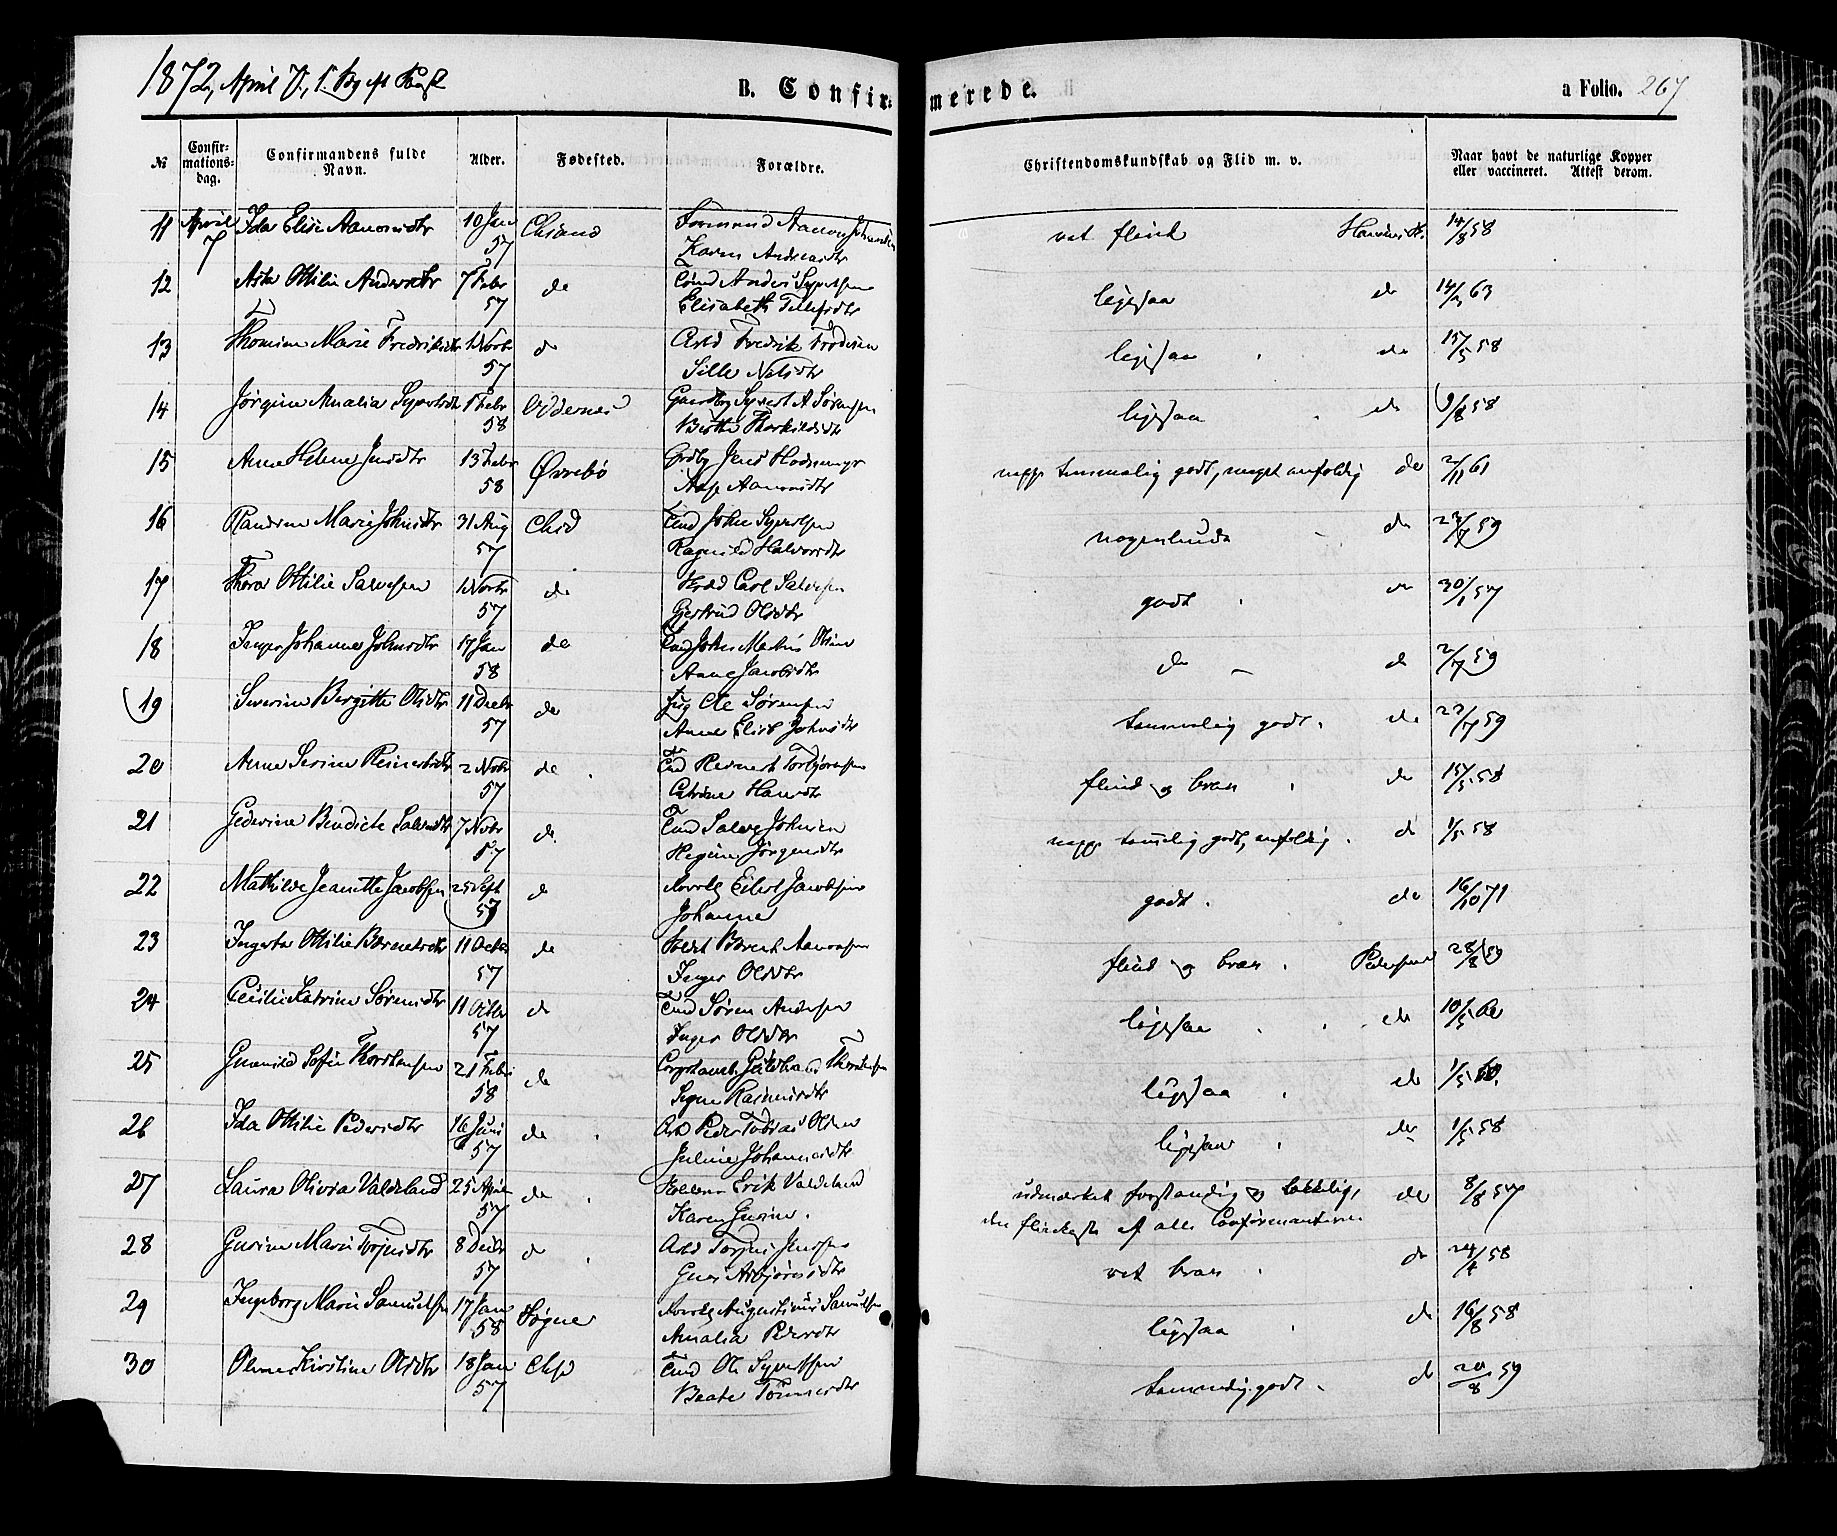 1872, April 7, 1. Sg eft Paaske
B. Confirmerede.
a Folio. 267
№ Confirmationsdag. Confirmandens fulde Navn. Alder. Fødested. Forældre. Christendomskundskab og Flid m. v. Naar havt de naturlige Kopper eller vaccineret. Attest derom.
11 April Ida Elise Aanonsdtr 10 Jan Chsand Aanon Johnsen meget flink 14/8 58
7 57 Karen Andersdtr
12 Asta Ottilie Andersdtr 7 Febr do Anders Syvertsen ligesaa do 63
57 Elisabeth Tellefsdtr
13 Thomine Marie Fredriksdtr 1 Novbr do Arbd Fredrik ligesaa do 15/5 58
57 Sille Nelsdtr
14 Jørgine Amalia Syvertsdtr 1 Febr Oddernes Syvert A Sørensen ligesaa do 9/8 58
58 Berthe Thorkildsdtr
15 Anne Helene Jensdtr 13 Febr Øvrebø Jens temmelig godt, meget enfoldig do 2/11 61
58 Aase Aanonsdtr
16 Randine Marie Johnsdtr 31 Aug Chsd Tmd John Syvertsen nogenlunde do 23/7 59
57 Ragnild Halvorsdtr
17 Thora Ottilie Salvesen 1 Novbr do Carl Salvesen godt do 30/1 57
57 Gjertrud Olsdtr
18 Inger Johanne Johnsdtr 17 Jan do Tmd John Martin Olsen do do 2/7 59
58 Anne Jacobsdtr
19 Severine Birgitte Olsdtr 11 Decbr do Ole Sørensen temmelig godt do 22/7 59
57 Anne Elisb Johnsdtr
20 Anne Serine Reinertsdtr 2 Novbr do Tmd Reinert Torbjørnsen flink og brav do 15/5 58
57 Catrine Hansdtr
21 Gederine Bendicte Salvesdtr 7 Novbr do Tmd Salve Johnsen temmelig godt, enfoldig do 1/5 58
57 Regine Jørgensdtr
22 Mathilde Jeanette Jacobsen 25 Sept do Eilert Jacobsen godt do 16/10 71
57 Johanne
23 Ingerta Ottilie Berentsdtr 11 Octbr do Berent Aanonsen flink og brav Pedersen 28/8 59
57 Inger Olsdtr
24 Cecilie Katrine Sørensdtr 11 Octbr do Tmd Søren Andersen ligesaa do 10/5 60
57 Inger Olsdtr
25 Gunnild Sofie Thorstensen 21 Febr do Thorstensen ligesaa do 1/5 60
58 Signe Rasmusdtr
26 Ida Ottilie Pedersdtr 16 Juni do Arb Peder Tobias Olsen ligesaa do 1/5 58
57 Juline Johannesdtr
27 Laura Olivia Valdeland 25 April do Erik Valdeland udmærket forstandig og do 8/8 57
57 Karen Gurine. den flinkeste af alle Confirmanterne
28 Gurine Marie Torjusdtr 8 Decbr do Arbd Torjus Jensen meget brav do 24/ 58
57 Guri Asbjørnsdtr
29 Ingeborg Marie Samuelsen 17 Jan Søgne Augustinus Samuelsen ligesaa do 16/8 58
58 Amalia Pedersdtr
30 Olene Kirstine Olsdtr 18 Jan Chsd Tmd Ole Syvertsen temmelig godt do 20/8 59
57 Beate Tønnesdtr